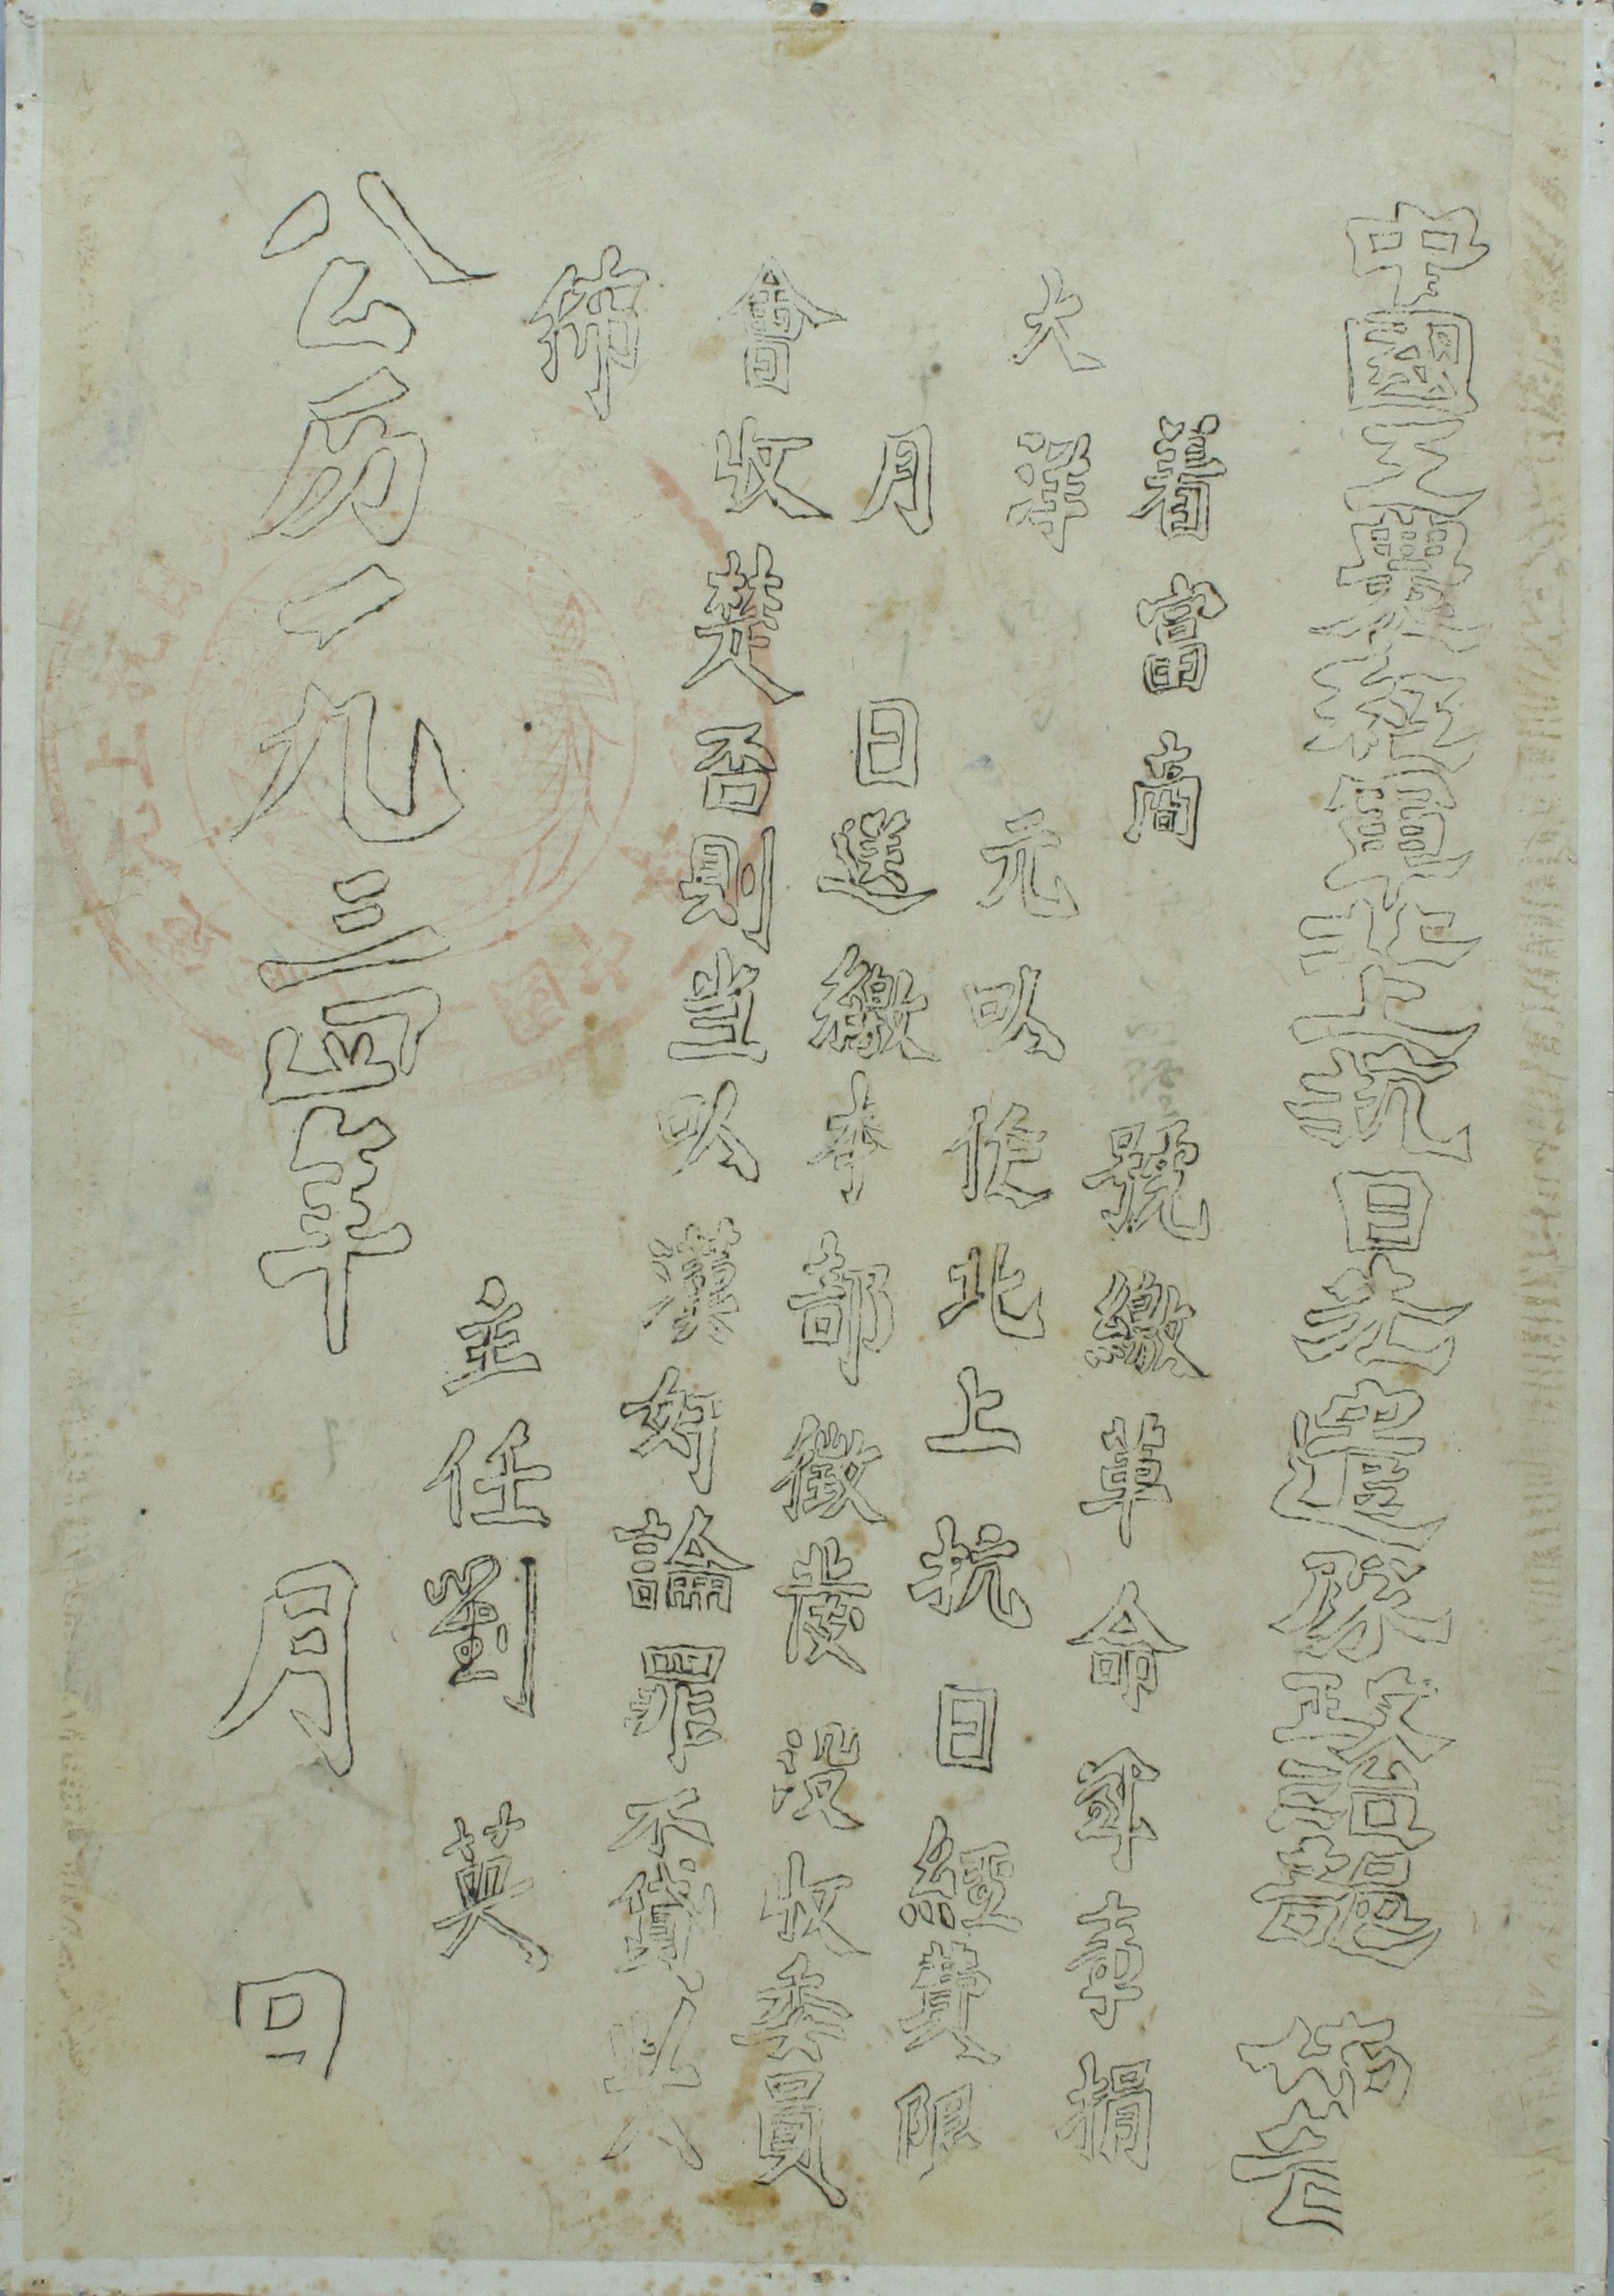 中國工農紅軍北上抗日先遣隊政治部
着富商 號繳革命軍事捐
大洋 元以作北上抗日經費限
月 日送繳本部徵發没收委員
會收楚否則当以漢奸論罪不貸此
佈
主任劉英
公历一九三四年 月 日